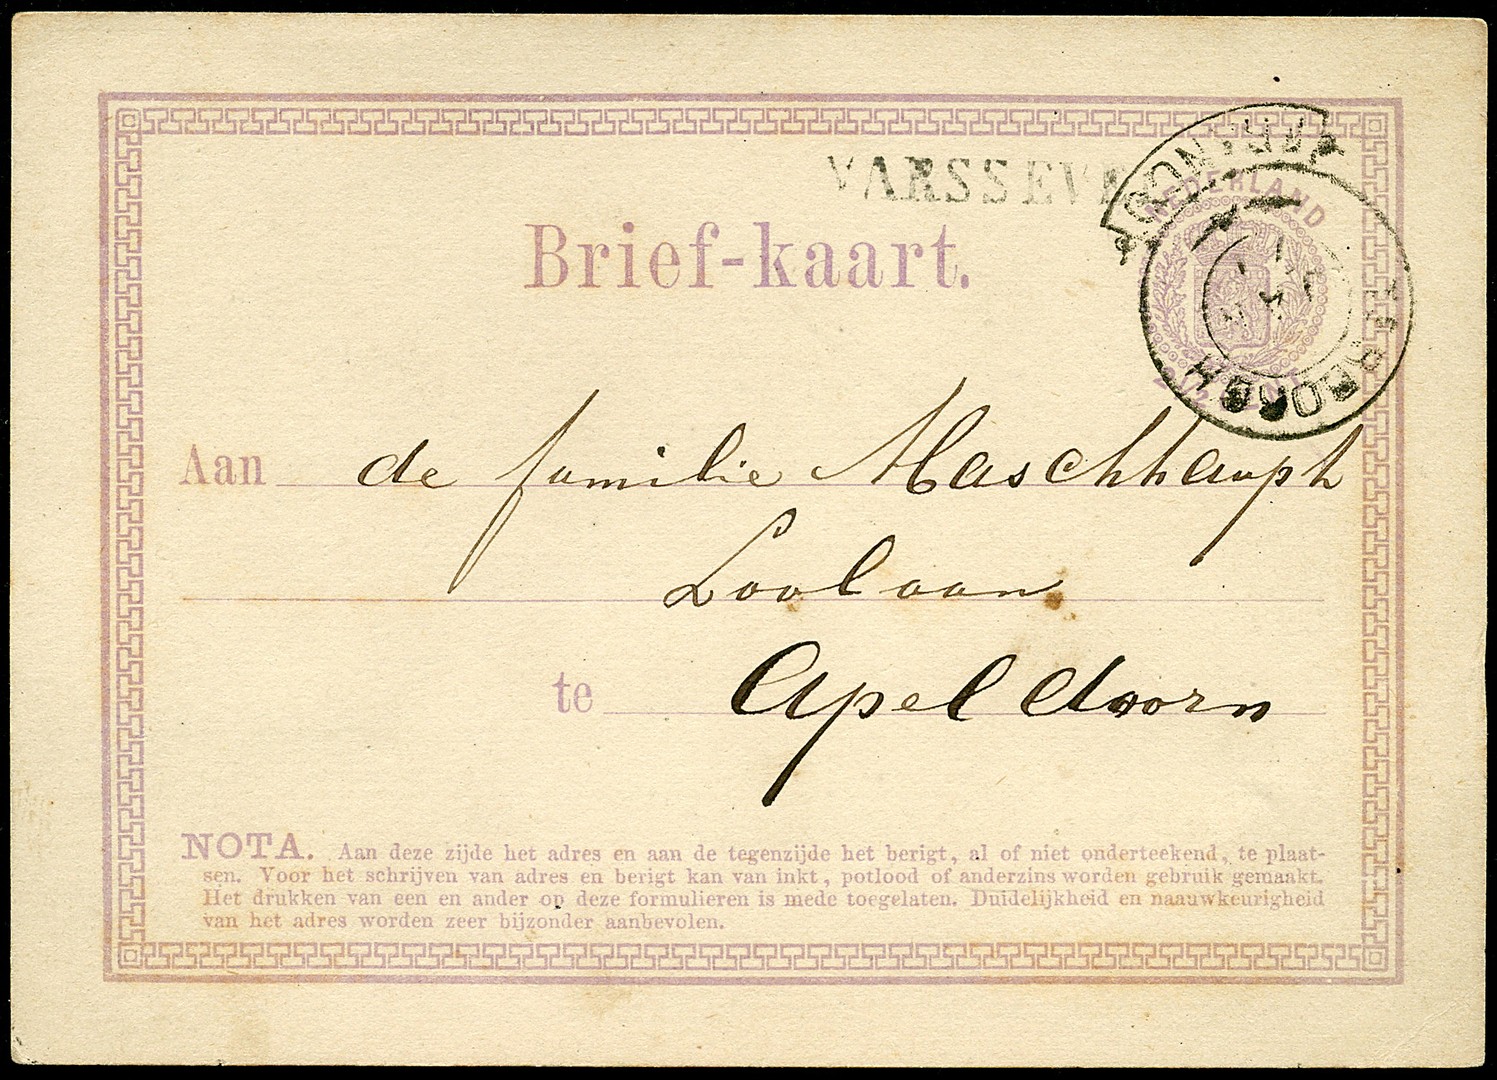 VARSSEVE
NEDERLAND
Brief-kaart.
Aan de familie Maschhaupt
Loolaan
te Apeldoorn
NOTA. Aan deze zijde het adres en aan de tegenzijde het berigt, al of niet onderteekend, te plaat-
sen. Voor het schrijven van adres en berigt kan van inkt, potlood of anderzins worden gebruik gemaakt.
Het drukken van een en ander op deze formulieren is mede toegelaten. Duidelijkheid en naauwkeurigheid
van het adres worden zeer bijzonder aanbevolen.